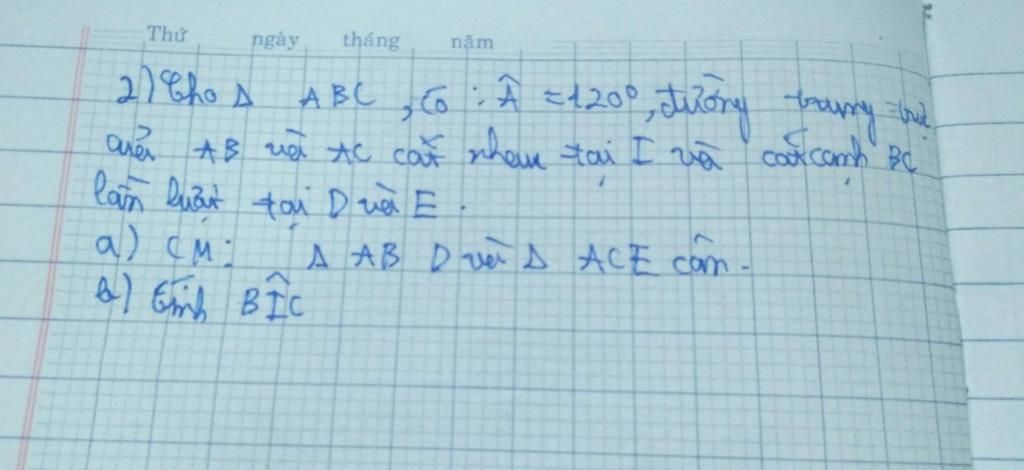 Thứ ngày tháng năm
2) Cho Δ ABC, có : Â = 120°, đường trung trực
của AB và AC cắt nhau tại I và cắt cạnh BC
lần lượt tại D và E.
a) CM: Δ ABD và Δ ACE cân.
b) Tính BÎC